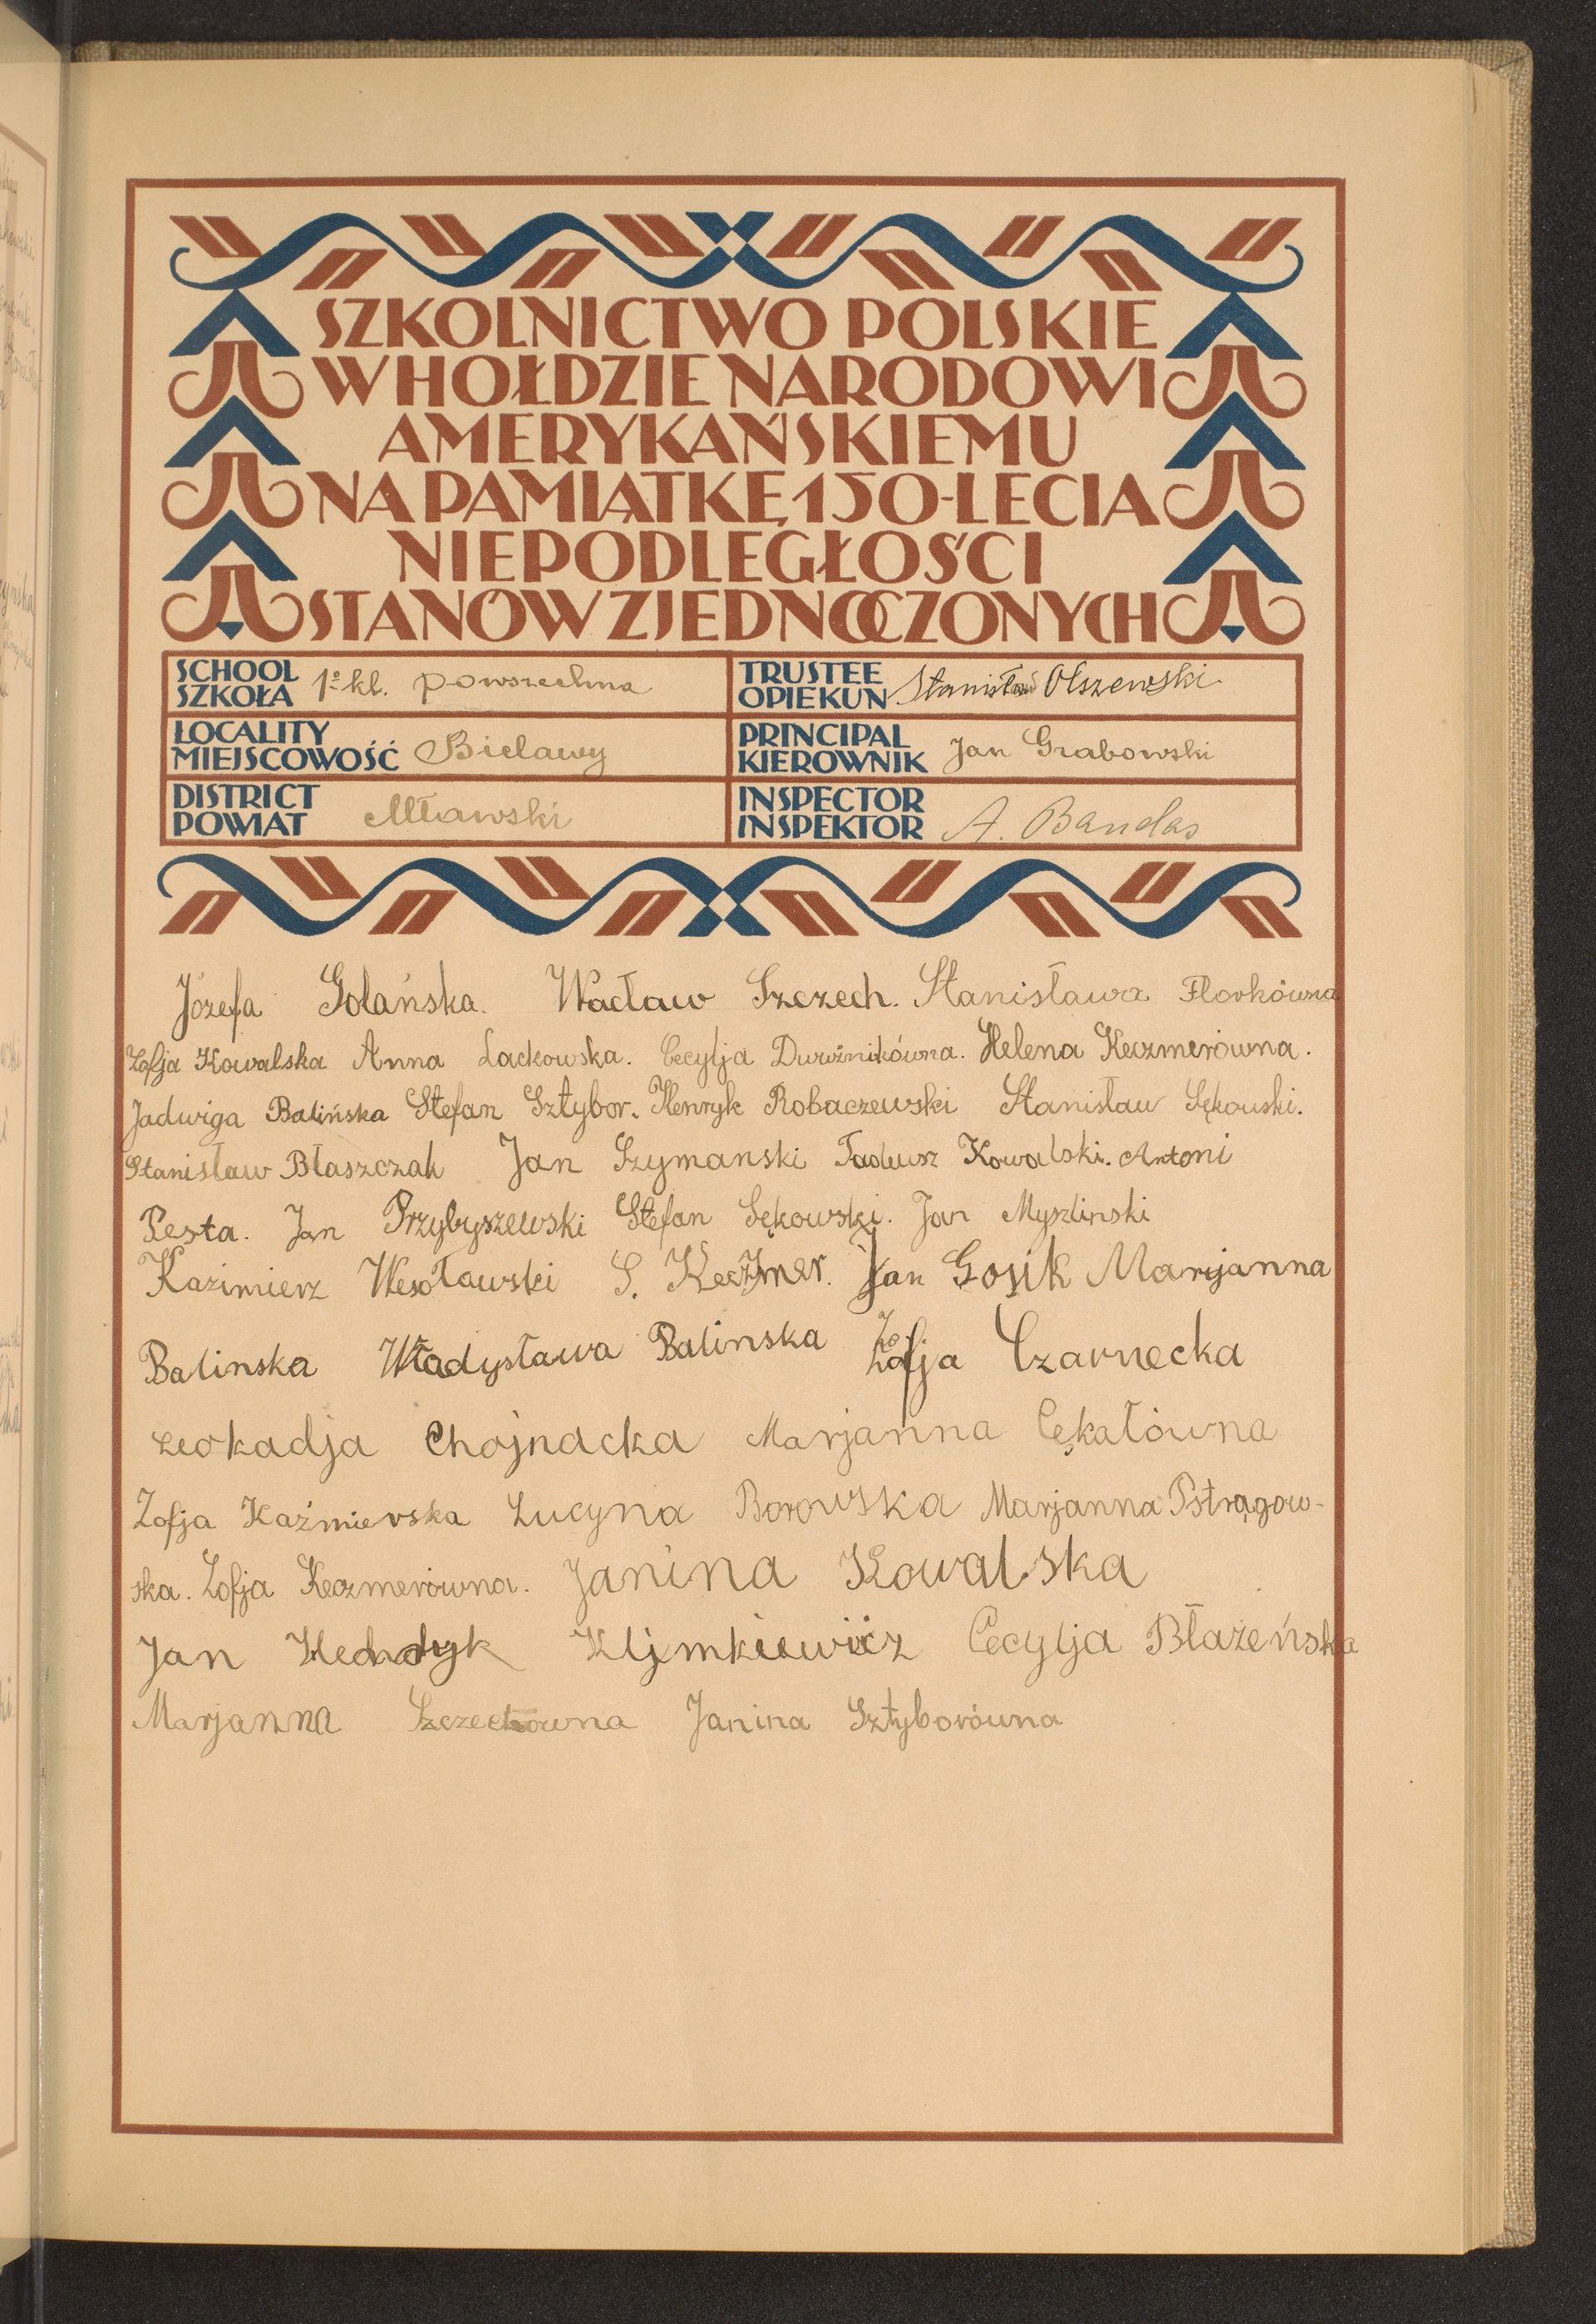 SZKOLNICTWO POLSKIE
W HOŁDZIE NARODOWI
AMERYKAŃSKIEMU
NA PAMIĄTKĘ 150-LECIA
NIEPODLEGŁOŚCI
STANÓW ZJEDNOCZONYCH
SCHOOL
SZKOŁA 1º kl. powszechna
TRUSTEE
OPIEKUN Stanisław Olszewski
LOCALITY
MIEJSCOWOŚĆ Bielawy
PRINCIPAL
KIEROWNIK Jan Grabowski
DISTRICT
POWIAT Mławski
INSPECTOR
INSPEKTOR A. Bandas
Józefa Golańska. Wacław Szczech. Stanisława Florkówna
Zofja Kowalska Anna Lackowska. Cecylja Duwźnikówna. Helena Keczmerówna.
Jadwiga Balińska Stefan Sztybor. Henryk Robaczewski Stanisław Sękowski.
Stanisław Błaszczak Jan Szymanski Tadeusz Kowalski. Antoni
Pesta. Jan Przybyszewski Stefan Sękowski. Jan Myszlinski
Kazimierz Wesołowski S. Keczmer. Jan Gosik Marjanna
Balinska Władysława Balinska Zofja Czarnecka
Leokadja Chojnacka Marjanna Cękałówna
Zofja Kaźmierska Lucyna Borowska Marjanna Pstrągow-
ska. Zofja Keczmerówna. Janina Kowalska
Jan Klimkiewicz Cecylja Błażeńska
Marjanna Szczechówna Janina Sztyborówna